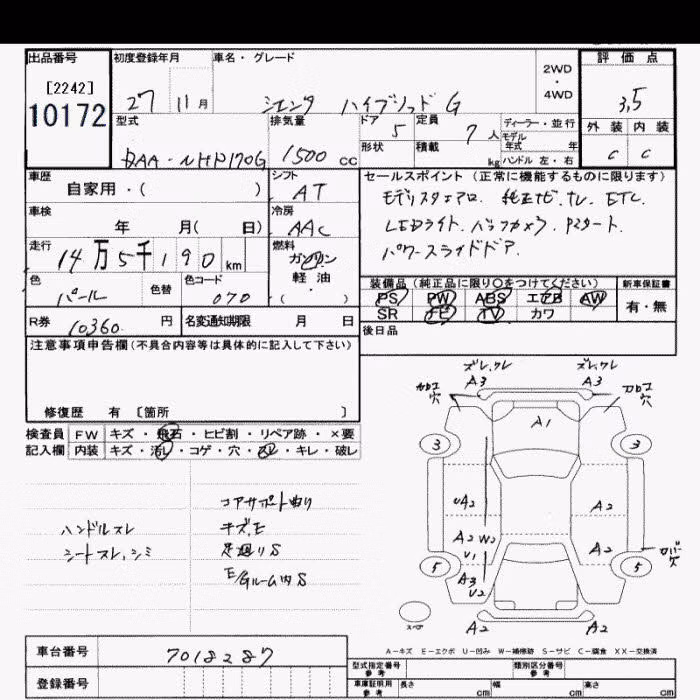 出品番号 初度登録年月 車名・グレード 2WD・4WD 評価点
[2242]
10172
27 11月 シエンタ ハイブリッド G 3.5
型式 排気量 ドア 定員 ディーラー・並行 外装 内装
DAA-NHP170G 1500 CC 5 7人 モデル年式 年 C C
形状 積載 kg ハンドル 左・右
車歴 シフト セールスポイント(正常に機能するものに限ります)
自家用・( ) AT モデリスタエアロ. 純正ナビ. TV. ETC.
車検 冷房 LEDライト. バックカメラ. Pスタート.
年 月( 日) AAC パワースライドドア.
走行 燃料
14万5千190km ガソリン
軽油
・( )
色 色替 色コード 装備品(純正品に限り○をつけてください) 新車保証書
パール 070 PS PW ABS エアB AW 有・無
R券 10360 円 名変通知期限 月 日 SR TV カワ
後日品
注意事項申告欄(不具合内容等は具体的に記入して下さい)
修復歴 有 〔箇所 〕
検査員 FW キズ・飛石・ヒビ割・リペア跡・×要
記入欄 内装 キズ・汚レ・コゲ・穴・スレ・キレ・破レ
ハンドルスレ
シートスレ,シミ
コアサポート曲り
キズ,E
足廻りS
E/Gルーム内S
ズレ,ワレ ズレ,ワレ
A3 A3
カロエ穴 カロエ穴
A1
3 3
UA2 A2
A2 W2 A2
U1 カバー穴
5 5
A3
U2
スペア A2 A2
A-キズ E-エクボ U-凹み W-補修跡 S-サビ C-腐食 XX-交換済
車台番号 7018287 型式指定番号参考 類別区分番号参考
登録番号 車庫証明用参考 長さ cm 幅 cm 高さ cm